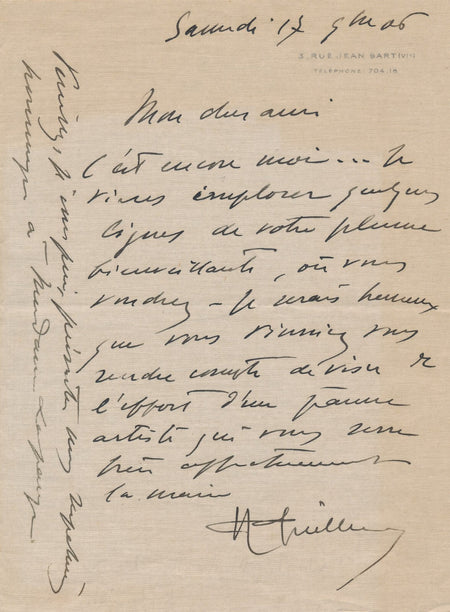 Samedi 17 9bre 06
3, RUE JEAN BART (VIe)
TÉLÉPHONE: 704.18
Mon cher ami
C'est encore moi... Je
viens implorer quelques
lignes de votre plume
bienveillante, où vous
voudrez – Je serais heureux
que vous vinssiez vous
rendre compte de visu de
l'effort d'un jeune
artiste qui vous serre
bien affectueusement
la main
Veuillez, je vous prie, présenter mes respectueux
hommages à Madame